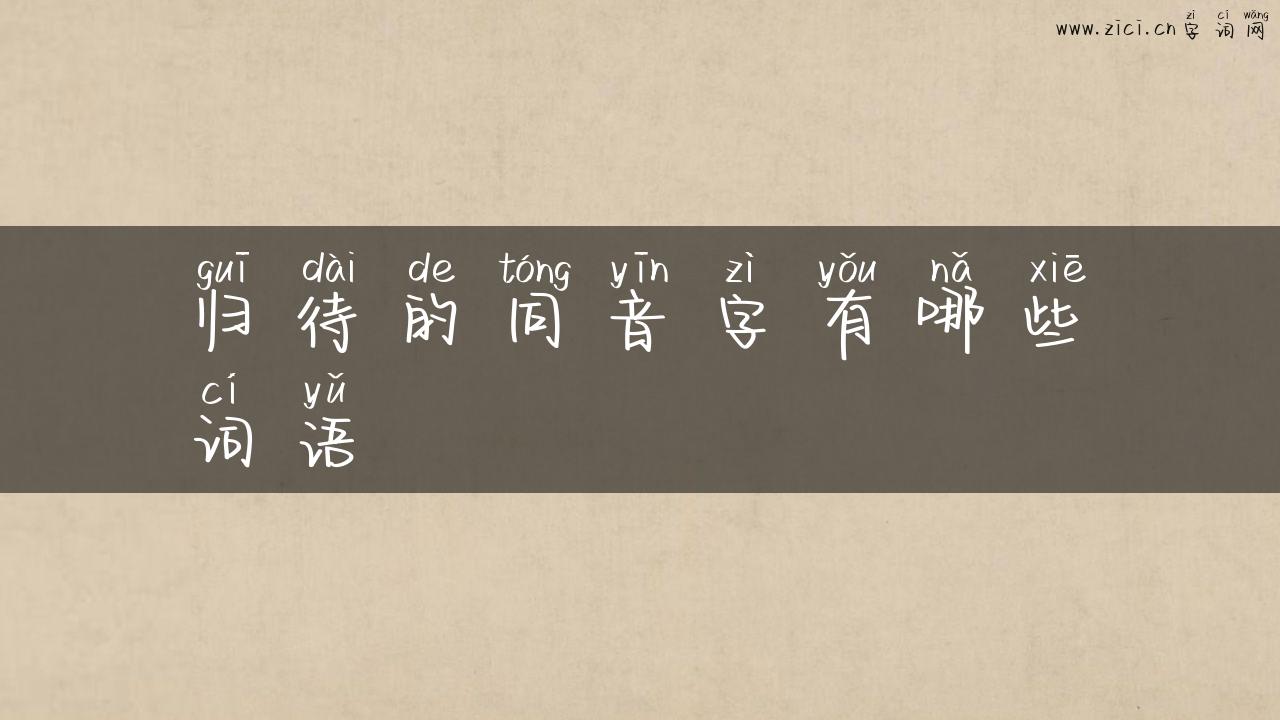 zì cí wǎng
www.zici.cn 字词网
guī dài de tóng yīn zì yǒu nǎ xiē
归待的同音字有哪些
cí yǔ
词语